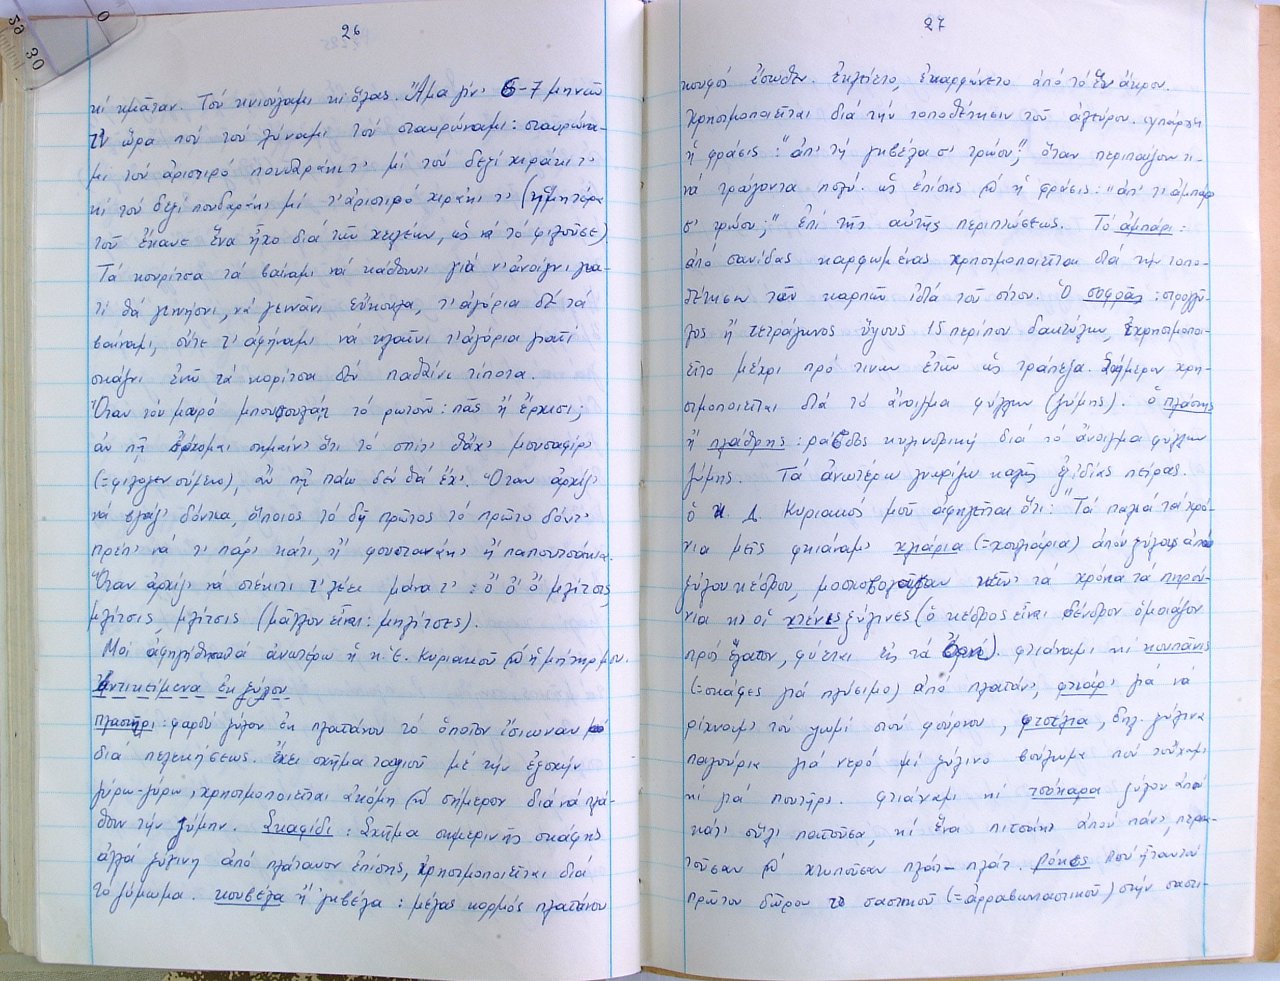 26
κί κμᾶταν. Τού κνιούλαμι κι ὅλας. Ἅμα γίν' 6-7 μηνῶ
τν ὥρα πού τού λύναμι τού σταυρώναμι: σταυρώνα-
μι τού ἀριστιρό πουδαράκι τ' μί τού δεξί χιράκι τ'
κί τού δεξί πουδαράκι μί τ' ἀριστιρό χιράκι τ' (ἡ μητέρα
τοῦ ἔκανε ἕνα ἦχο διά τῶν χειλέων, ὡς νά τό φιλοῦσε)
Τά κουρίτσα τά βαίναμι νά κάθουντι γιά ν' ἀνοίγνι για-
τί θά γεννήσνι, νά γεννᾶνι εὔκουλα, τ' ἀγόρια δέ τά
βαίναμι, οὔτε τ' ἀφήναμι νά κλαῖνι τ' ἀγόρια γιατί
σκάζνι ἐνῶ τά κορίτσα δέν παθαίνι τίποτα.
Ὅταν τού μωρό μπουσουλάῃ τό ρωτοῦν: πᾶς ἤ ἔρχισι;
ἄν πῇ ἔρχομαι σημαίν' ὅτι τό σπίτ' θἄχ' μουσαφίρ'
(=φιλοξενούμενο), ἄν πῇ πάω δέν θά ἔχ'. Ὅταν ἀρχίζ'
νά βγάζ' δόντια, ὅποιος τό δῇ πρῶτος τό πρῶτο δόντι
πρέπ' νά τ' πάρ' κάτι, ἤ φουστανάκι ἤ παπουτσάκια.
Ὅταν ἀρχίζ' νά στέκιτι τ' λέει μάνα τ': ὄ ὄ ὄ μλίτσις,
μλίτσις, μλίτσις (μᾶλλον εἶναι: μηλίτσες).
Μοί ἀφηγήθη τά ἀνωτέρω ἡ κ. Ε. Κυριακοῦ καί ἡ μητήρ μου.
Ἀντικείμενα ἐκ ξύλου
Πλαστῆρι: φαρδύ ξύλον ἐκ πλατάνου τό ὁποῖον ἔσιωναν
διά πελεκήσεως. Ἔχει σχῆμα ταψιοῦ μέ τήν ἐξοχήν
γύρω-γύρω, χρησιμοποιεῖται ἀκόμη καί σήμερον διά νά πλά-
θουν τήν ζύμην. Σκαφίδι: Σχῆμα σημερινῆς σκάφης
ἀλλά ξύλινη ἀπό πλάτανον ἐπίσης, χρησιμοποιεῖται διά
τό ζύμωμα. κουβέλα ἤ γκβέλα: μέγας κορμός πλατάνου
27
κουφός ἔσωθεν. Ἐκλείετο, ἐκαρφώνετο ἀπό τό ἕν ἄκρον.
Χρησιμοποιεῖται διά τήν τοποθέτησιν τοῦ ἀλεύρου. ὑπάρχει
ἡ φράσις: "ἀπ' τή γκβέλα σ' τρώου;" ὅταν περιπαίζουν τι-
νά τρώγοντα πολύ. ὡς ἐπίσης καί ἡ φράσις: "ἀπ' τ' ἀμπάρ
σ' τρώου;" ἐπί τῆς αὐτῆς περιπτώσεως. Τό ἀμπάρι:
ἀπό σανίδας καρφωμένας χρησιμοποιεῖται διά τήν τοπο-
θέτησιν τῶν καρπῶν ἰδίᾳ τοῦ σίτου. Ὁ σοφρᾶς: στρογγύ-
λος ἤ τετράγωνος ὕψους 15 περίπου δακτύλων, ἐχρησιμοποι-
εῖτο μέχρι πρό τινων ἐτῶν ὡς τράπεζα. Σήμερον χρη-
σιμοποιεῖται διά τό ἄνοιγμα φύλλων (ζύμης). ὁ πλάστης
ἤ πλάθρης: ράβδος κυλινδρική διά τό ἄνοιγμα φύλλων
ζύμης. Τά ἀνωτέρω γνωρίζω καλῶς ἐξ ἰδίας πείρας.
ὁ κ. Δ. Κυριακός μοῦ ἀφηγεῖται ὅτι: "Τά παλιά τά χρό-
νια μεῖς φκιάναμι χλιάρια (=κουλιάρια) ἀπού ξύλους ἀπό
ξύλου κέδρου, μοσκοβολούσαν κεῖν' τά χρόνια τά πιρού-
νια κι οἱ χτένες ξύλινες (ὁ κέδρος εἶναι δένδρον ὁμοιάζον
πρός ἔλατον, φύεται εἰς τά ὄρη). φτιάναμι κί κουπάνις
(=σκάφες γιά πλύσιμο) ἀπό πλατάν', φτιάρ' γιά νά
ρίχναμι τού ψωμί στού φούρνου, φτσέλια, δηλ. ξύλινα
παγούρια γιά νερό μί ξύλινο βούλωμα πού τοὔχαμι
κί γιά πουτήρ'. φτιάναμι κί τσόκαρα ξύλου ἀπό
κάτ' οὔλ' πατοῦσα, κί ἕνα πιτσάκι ἀπού πάν', περπα-
τοῦσαν καί χτυποῦσαν πλάτ-πλάτ. Ρόκες πού ἦταν τού
πρῶτου δῶρου τ' σαστικοῦ (=ἀρραβωνιαστικοῦ) στήν σαστι-